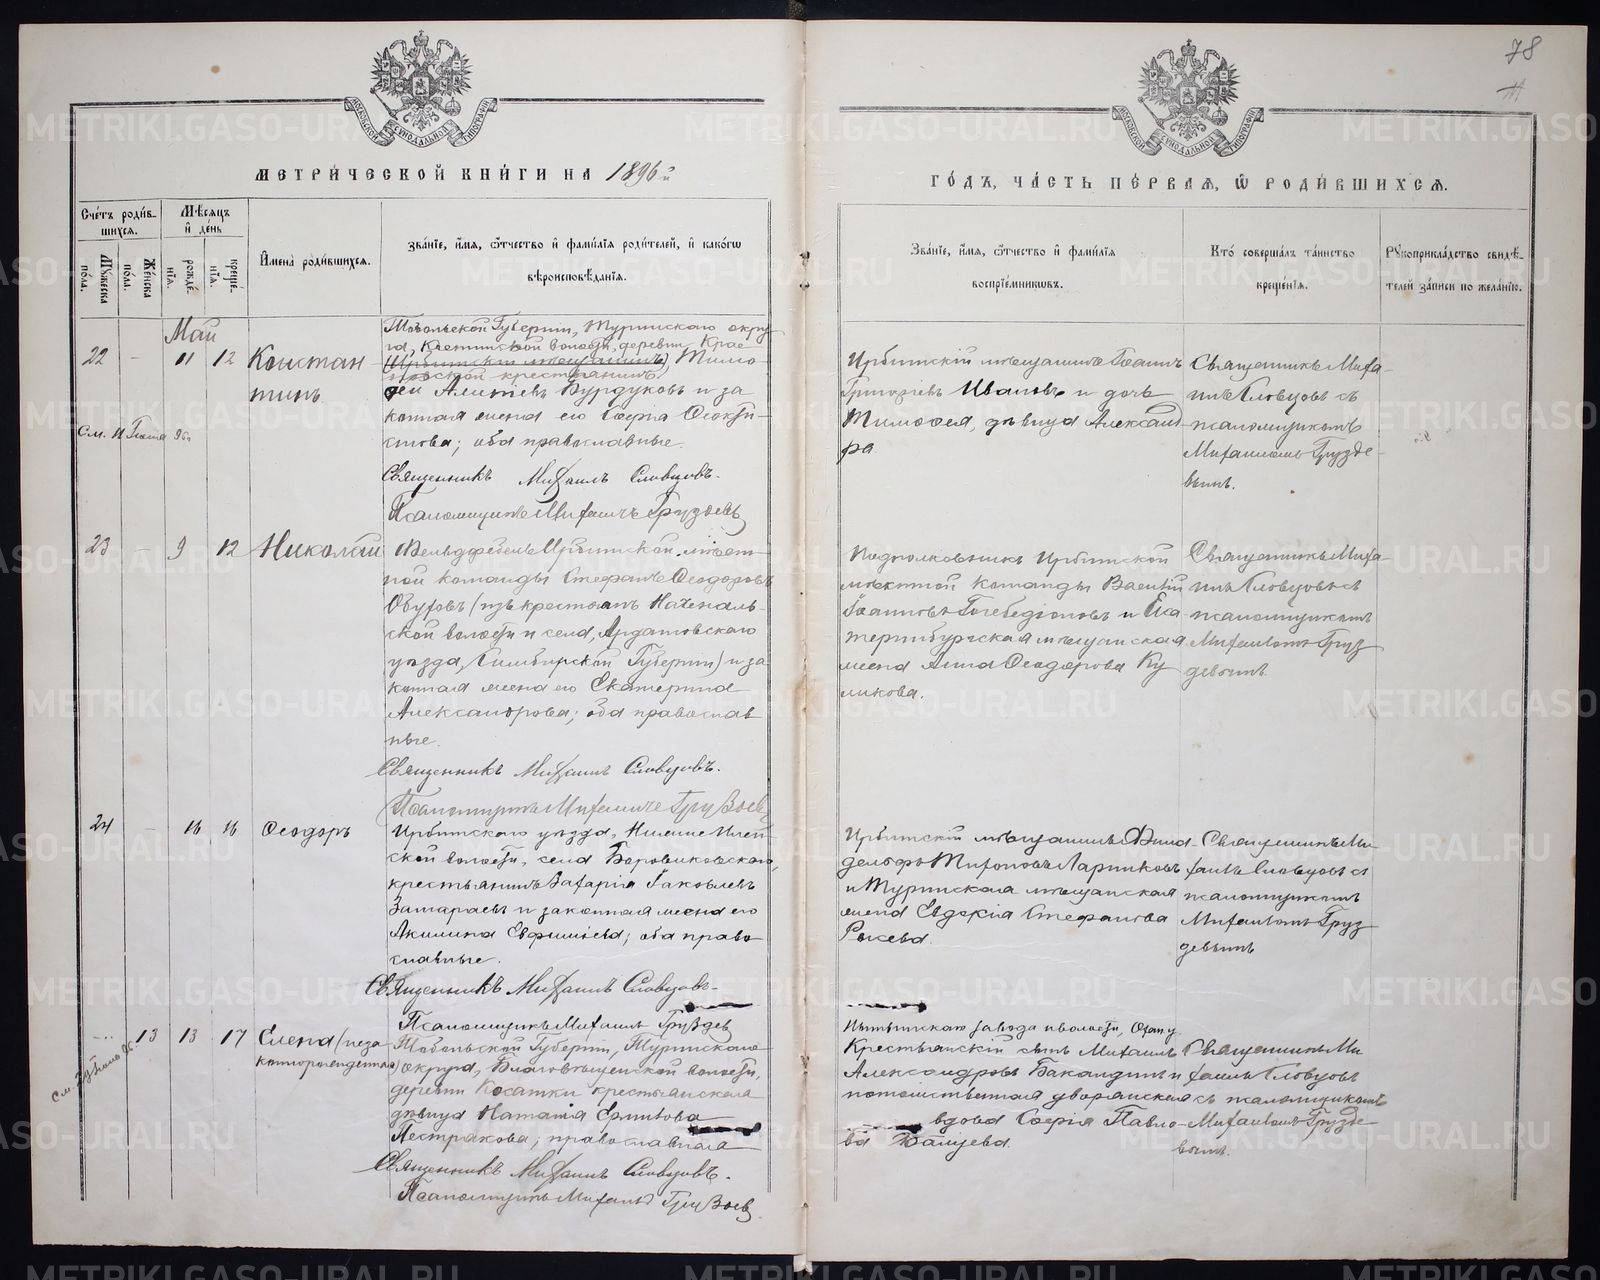 78
МОСКОВСКОЙ СУНОДАЛЬНОЙ ТИПОГРАФІИ
МОСКОВСКОЙ СУНОДАЛЬНОЙ ТИПОГРАФІИ
МЕТРИ́ЧЕСКОЙ КНИ́ГИ НА 1896й
ГО́ДЪ, ЧА́СТЬ ПЕ́РВАЯ, Ѿ РОДИ́ВШИХСЯ.
Сче́тъ роди́в-
шихся.
Мꙋжеска по́ла.
Же́нска по́ла.
Мѣ́сяцъ
и҆ де́нь
рожде́нїя.
креще́нїя.
И҆мена̀ роди́вшихся.
Зва́нїе, и҆́мя, ѻ҆́тчество и҆ фами́лїя роди́телей, и҆ како́гѡ
вѣроисповѣ́данїя.
Зва́нїе, и҆́мя, ѻ҆́тчество и҆ фами́лїя
воспрїе́мникѡвъ.
Кто̀ соверша́лъ та́инство
креще́нїя.
Рꙋкоприкла́дство свидѣ́-
телей за́писи по жела́нїю.
Май
22 - 11 12 Констан
тинъ
Тобольской Губерніи, Туринскаго окру
га, волости, деревни
(Ирбитскій мѣщанинъ) Тимо-
крестьянинъ
фей Бурдуковъ и за
конная жена его Софія Ѳеокти-
стова; оба православные.
Священникъ Михаилъ Словцовъ.
Псаломщикъ Михаилъ Груздевъ
Ирбитскій мѣщанинъ Іоаннъ
Григоріевъ Ивановъ и дочь
Тимофея, дѣвица Александ
ра
Священникъ Миха-
илъ Словцовъ съ
псаломщикомъ
Михаиломъ Грузде-
вымъ.
23 - 9 12 Николай
Фельдфебель Ирбитской мѣст-
ной команды Стефанъ Ѳеодоровъ
Обуховъ (изъ крестьянъ
ской волости и села, Ардатовскаго
уѣзда, Симбирской Губерніи) и за-
конная жена его Екатерина
Александрова; оба православ
ные.
Священникъ Михаилъ Словцовъ.
Псаломщикъ Михаилъ Груздевъ
Подполковникъ Ирбитской
мѣстной команды Василій
Іоанновъ и Ека-
теринбургская мѣщанская
жена Анна Ѳеодорова Ку
ликова.
Священникъ Миха-
илъ Словцовъ съ
псаломщикомъ
Михаиломъ Груз
девымъ
24 - 16 16 Ѳеодоръ
Ирбитскаго уѣзда,
ской волости, села
крестьянинъ Захарія Іаковлевъ
Замараевъ и законная жена его
Акилина Евфиміева; оба право
славные.
Священникъ Михаилъ Словцовъ
Псаломщикъ Михаилъ Груздевъ
Ирбитскій мѣщанинъ Фила-
дельфъ Тихоновъ Ларниковъ
и Туринская мѣщанская
жена Евдокія Стефанова
Рысева.
Священникъ Ми-
хаилъ Словцовъ съ
псаломщикомъ
Михаиломъ Груз
девымъ
13 13 17 Елена (неза
коннорожденная)
Тобольской Губерніи, Туринскаго
округа, Благовѣщенской волости,
деревни Косатки крестьянская
дѣвица Наталія
Пестрякова; православная
Священникъ Михаилъ Словцовъ.
Псаломщикъ Михаилъ Груздевъ
завода и волости,
Крестьянскій сынъ Михаилъ
Александровъ Бакандинъ и
потомственная дворянская
вдова Софія Павло-
ва
Священникъ Ми
хаилъ Словцовъ
съ псаломщикомъ
Михаиломъ Грузде
вымъ.
METRIKI.GASO-URAL.RU